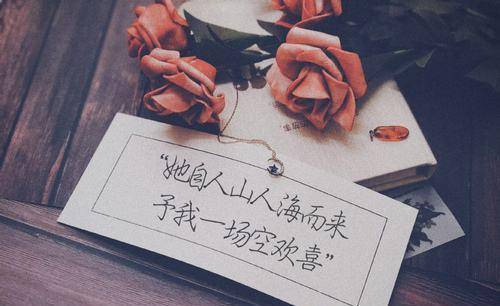 “她自人山人海而来
予我一场空欢喜”